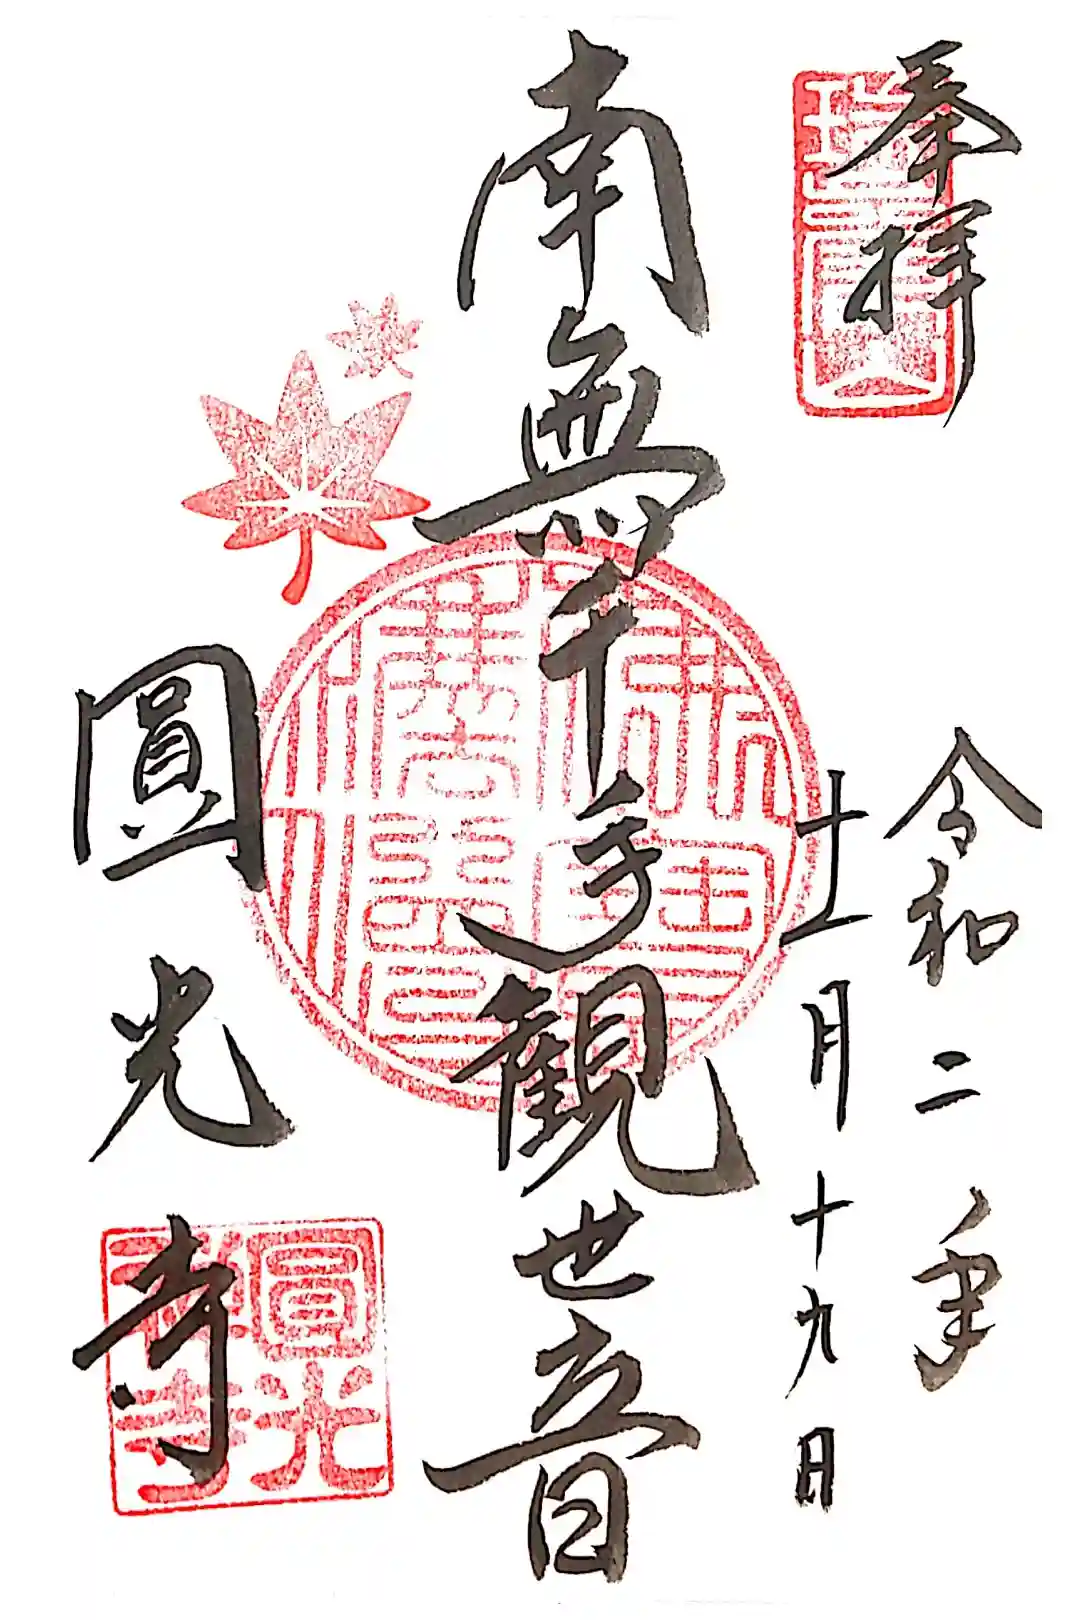 奉拝
令和二年
十一月十九日
南無千手観世音
圓光寺
圓光禅寺